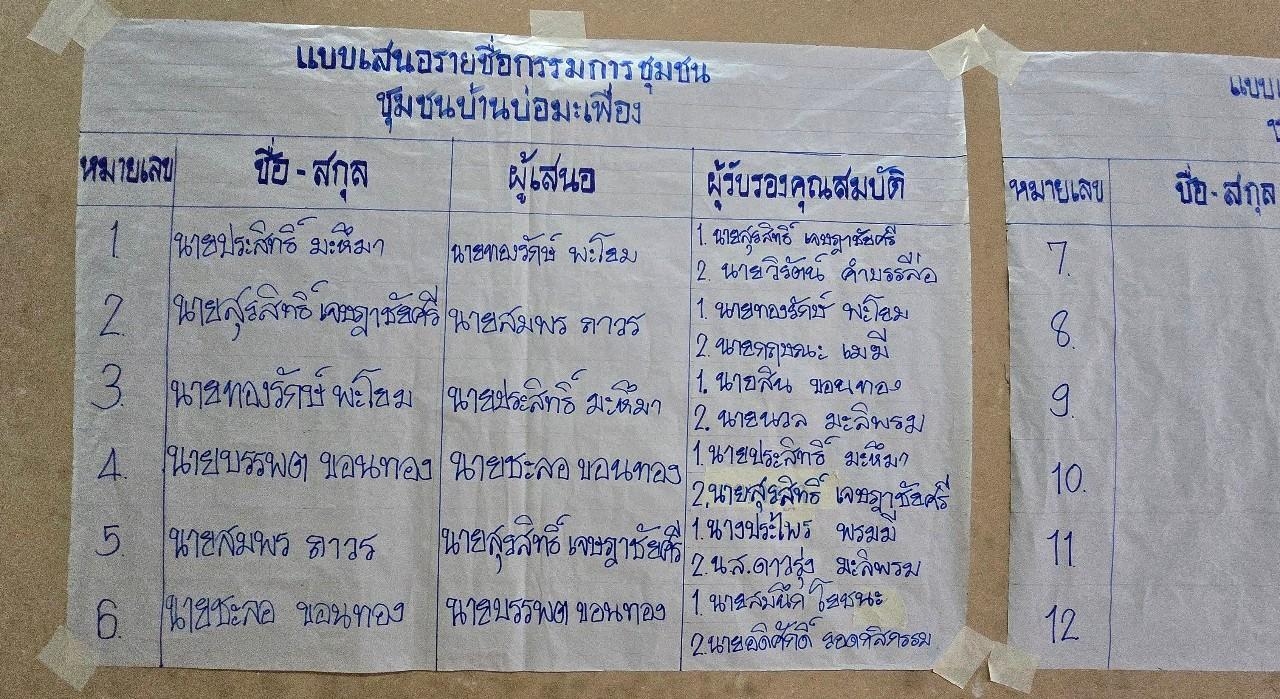 แบบเสนอรายชื่อกรรมการชุมชน
ชุมชนบ้านบ่อมะเฟือง
หมายเลข ชื่อ - สกุล ผู้เสนอ ผู้รับรองคุณสมบัติ
1 นายประสิทธิ์ มะหิมา นายทองรักษ์ พะโยม 1. นายสุรสิทธิ์ เจษฎาชัยศรี
2. นายวิรัตน์ คำบรรลือ
2. นายสุรสิทธิ์ เจษฎาชัยศรี นายสมพร ถาวร 1. นายทองรักษ์ พะโยม
2. นายกฤษณะ เมฆี
3. นายทองรักษ์ พะโยม นายประสิทธิ์ มะหิมา 1. นายสิน ขอนทอง
2. นายนวล มะลิพรม
4. นายบรรพต ขอนทอง นายชะลอ ขอนทอง 1. นายประสิทธิ์ มะหิมา
2. นายสุรสิทธิ์ เจษฎาชัยศรี
5. นายสมพร ถาวร นายสุรสิทธิ์ เจษฎาชัยศรี 1. นางประไพร พรมมี
2. น.ส.ดาวรุ่ง มะลิพรม
6. นายชะลอ ขอนทอง นายบรรพต ขอนทอง 1. นายสมนึก โยชนะ
2. นายอดิศักดิ์
แบบเ
ชุ
หมายเลข ชื่อ - สกุล
7.
8.
9.
10.
11
12